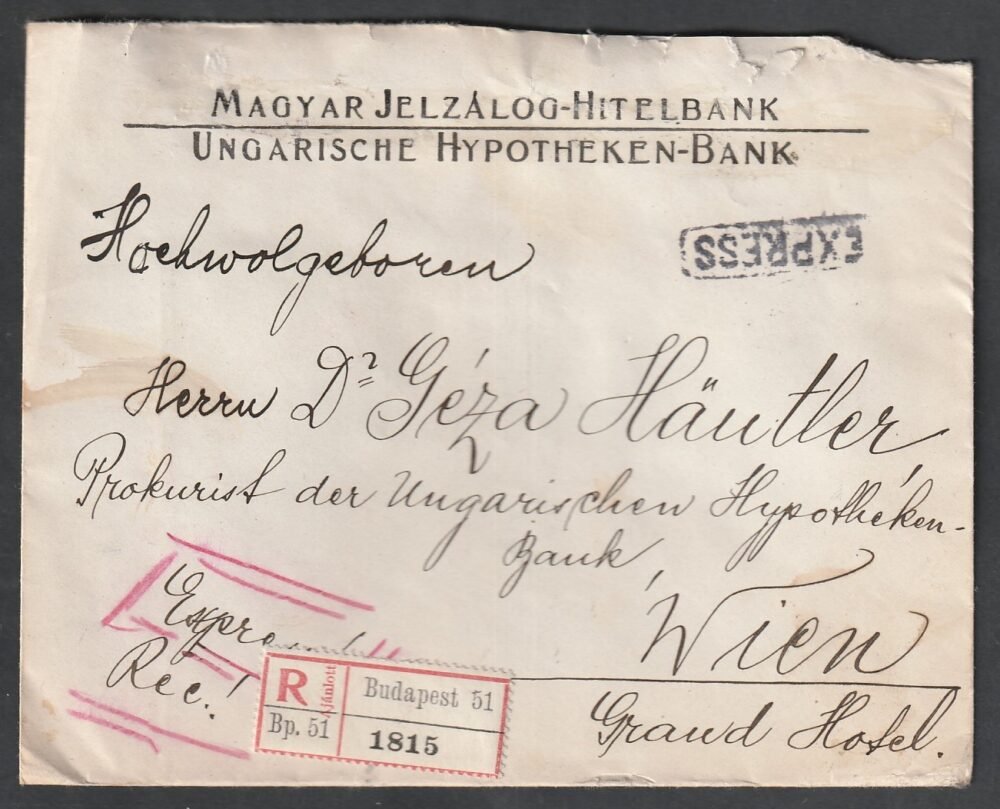 MAGYAR JELZÁLOG-HITELBANK
UNGARISCHE HYPOTHEKEN-BANK
EXPRESS
Hochwolgeboren
Herrn Dr Géza Häutler
Prokurist der Ungarischen Hypotheken-
Bank,
Wien
Grand Hotel.
Expre
Rec!
R Ajánlott Budapest 51
Bp. 51 1815